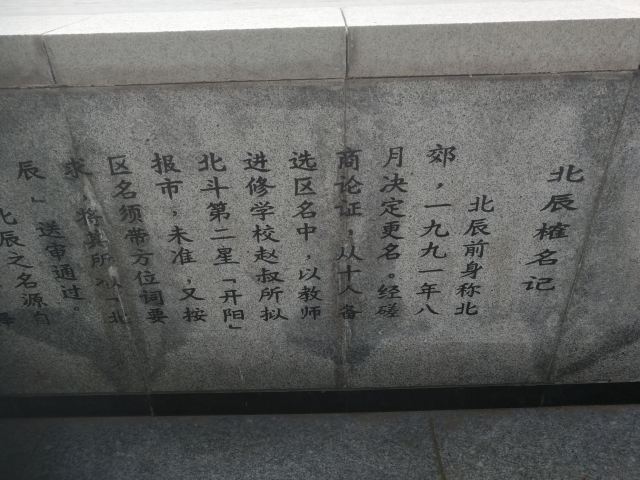 北辰榷名记
北辰前身称北
郊，一九九一年八
月决定更名。经磋
商论证，从十人备
选区名中，以教师
进修学校赵叔所拟
北斗第二星「开阳」
报市，未准，又按
区名须带方位词要
求，将其所拟「北
辰」送审通过。
北辰之名源自